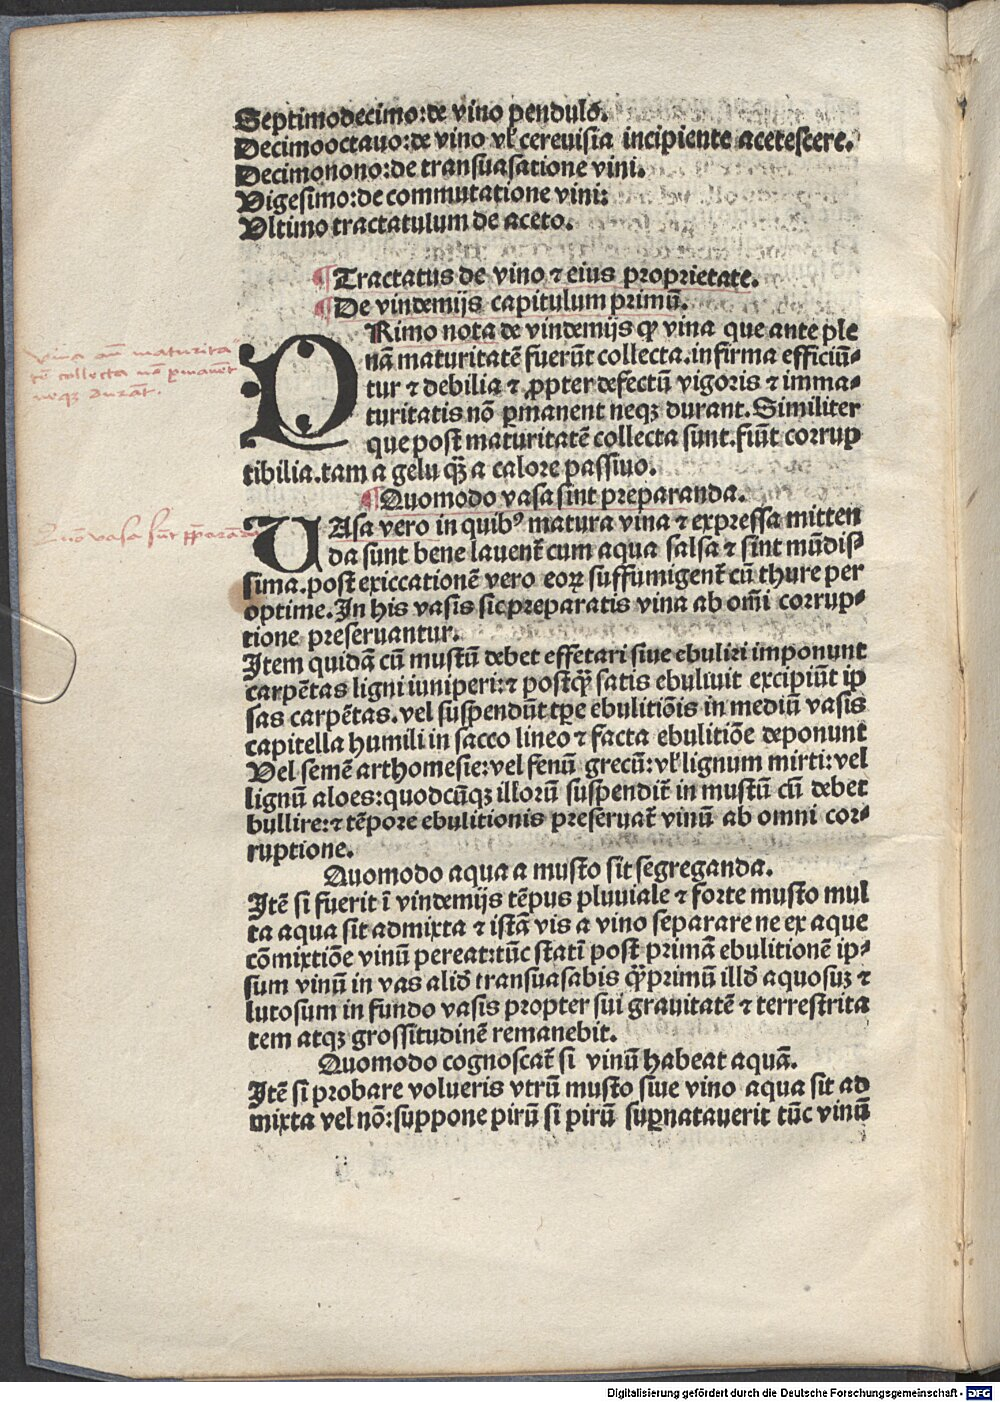 Septimodecimo: de vino pendulo.
Decimooctauo: de vino vł cereuisia incipiente acetescere.
Decimonono: de transuasatione vini.
Vigesimo: de commutatione vini:
Vltimo tractatulum de aceto.
¶ Tractatus de vino ⁊ eius proprietate.
¶ De vindemijs capitulum primū.
PRimo nota de vindemijs ꝙ vina que ante ple
nā maturitatē fuerūt collecta. infirma efficiū⸗
tur ⁊ debilia ⁊ ꝓpter defectū vigoris ⁊ imma⸗
turitatis nō ꝑmanent neqꝫ durant. Similiter
que post maturitatē collecta sunt. fiūt corrup
tibilia. tam a gelu q̄ꝫ a calore passiuo.
vina an̄ maturita⸗
tē collecta nō ꝑmanēt
neqꝫ durāt.
¶ Quomodo vasa sint preparanda.
VAsa vero in quibꝰ matura vina ⁊ expressa mitten
da sunt bene lauent̄ cum aqua salsa ⁊ sint mūdis⸗
sima. post exiccationē vero eoꝝ suffumigent̄ cū thure per
optime. In his vasis sic preparatis vina ab om̄i corrup⸗
tione preseruantur.
Quō vasa sūt p̄parāda
Item quidā cū mustū debet effētari siue ebuliri imponunt
carpētas ligni iuniperi: ⁊ postq̄ꝫ satis ebuliuit excipiūt ip
sas carpētas. vel suspendūt tꝑe ebulitiōis in mediū vasis
capitella humili in sacco lineo ⁊ facta ebulitiōe deponunt
Vel semē arthomesie: vel fenū grecū: vł lignum mirti: vel
lignū aloes: quodcūqꝫ illorū suspendit̄ in mustū cū debet
bullire: ⁊ tēpore ebulitionis preseruat̄ vinū ab omni cor⸗
ruptione.
Quomodo aqua a musto sit segreganda.
Itē si fuerit ī vindemijs tēpus pluuiale ⁊ forte musto mul
ta aqua sit admixta ⁊ istā vis a vino separare ne ex aque
cōmixtiōe vinū pereat: tūc statī post primā ebulitionē ip⸗
sum vinū in vas aliđ transuasabis q̄ꝫprimū illđ aquosuꝫ ⁊
lutosum in fundo vasis propter sui grauitatē ⁊ terrestrita
tem atqꝫ grossitudinē remanebit.
Quomodo cognoscat̄ si vinū habeat aquā.
Itē si probare volueris vtrū musto siue vino aqua sit ad
mixta vel nō: suppone pirū si pirū suꝑnatauerit tūc vinū
Digitalisierung gefördert durch die Deutsche Forschungsgemeinschaft - DFG